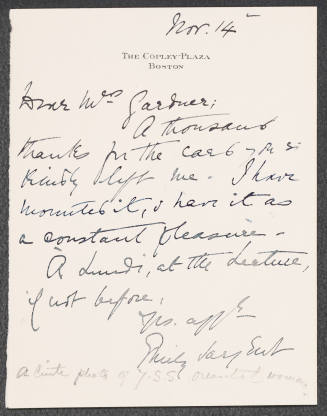 Nov. 14
THE COPLEY-PLAZA
BOSTON
Dear Mrs Gardner;
A thousand
thanks for the card you so
kindly left me. I have
mounted it, & have it as
a constant pleasure -
À Lundi, at the Lecture,
if not before,
Yrs. affly
Emily Sargent
photo of J.S.S's oriental woman